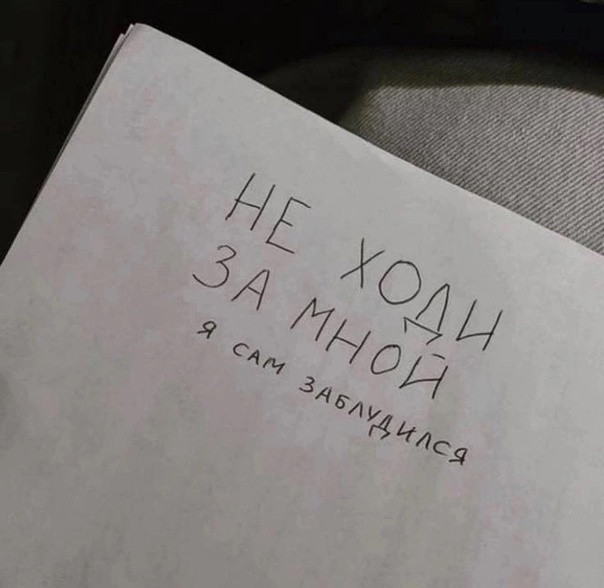 НЕ ХОДИ
ЗА МНОЙ
я САМ ЗАБЛУДИЛСЯ